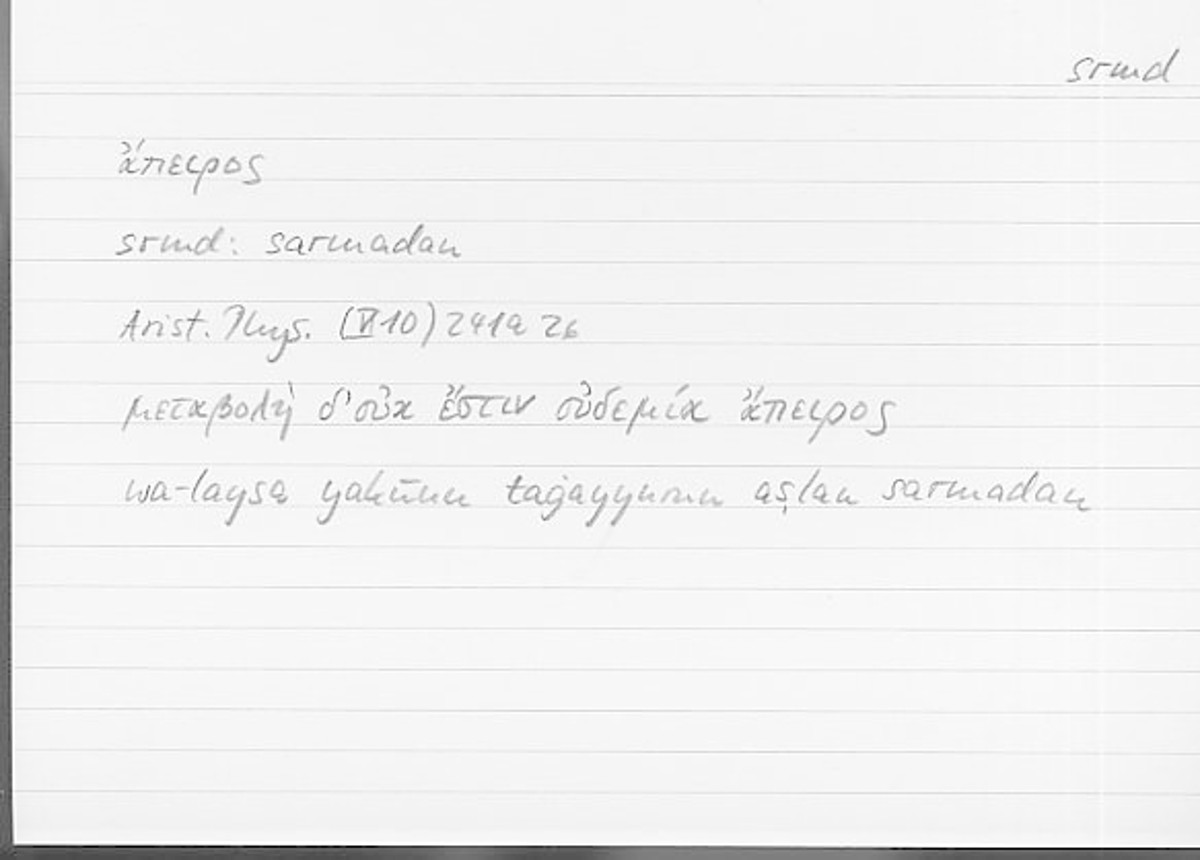 srmd
ἄπειρος
srmd: sarmadan
Arist. Phys. (VI 10) 241a 26
μεταβολὴ δ'οὐκ ἔστιν οὐδεμία ἄπειρος
wa-laysa yakūnu taġayyurun aṣlan sarmadan